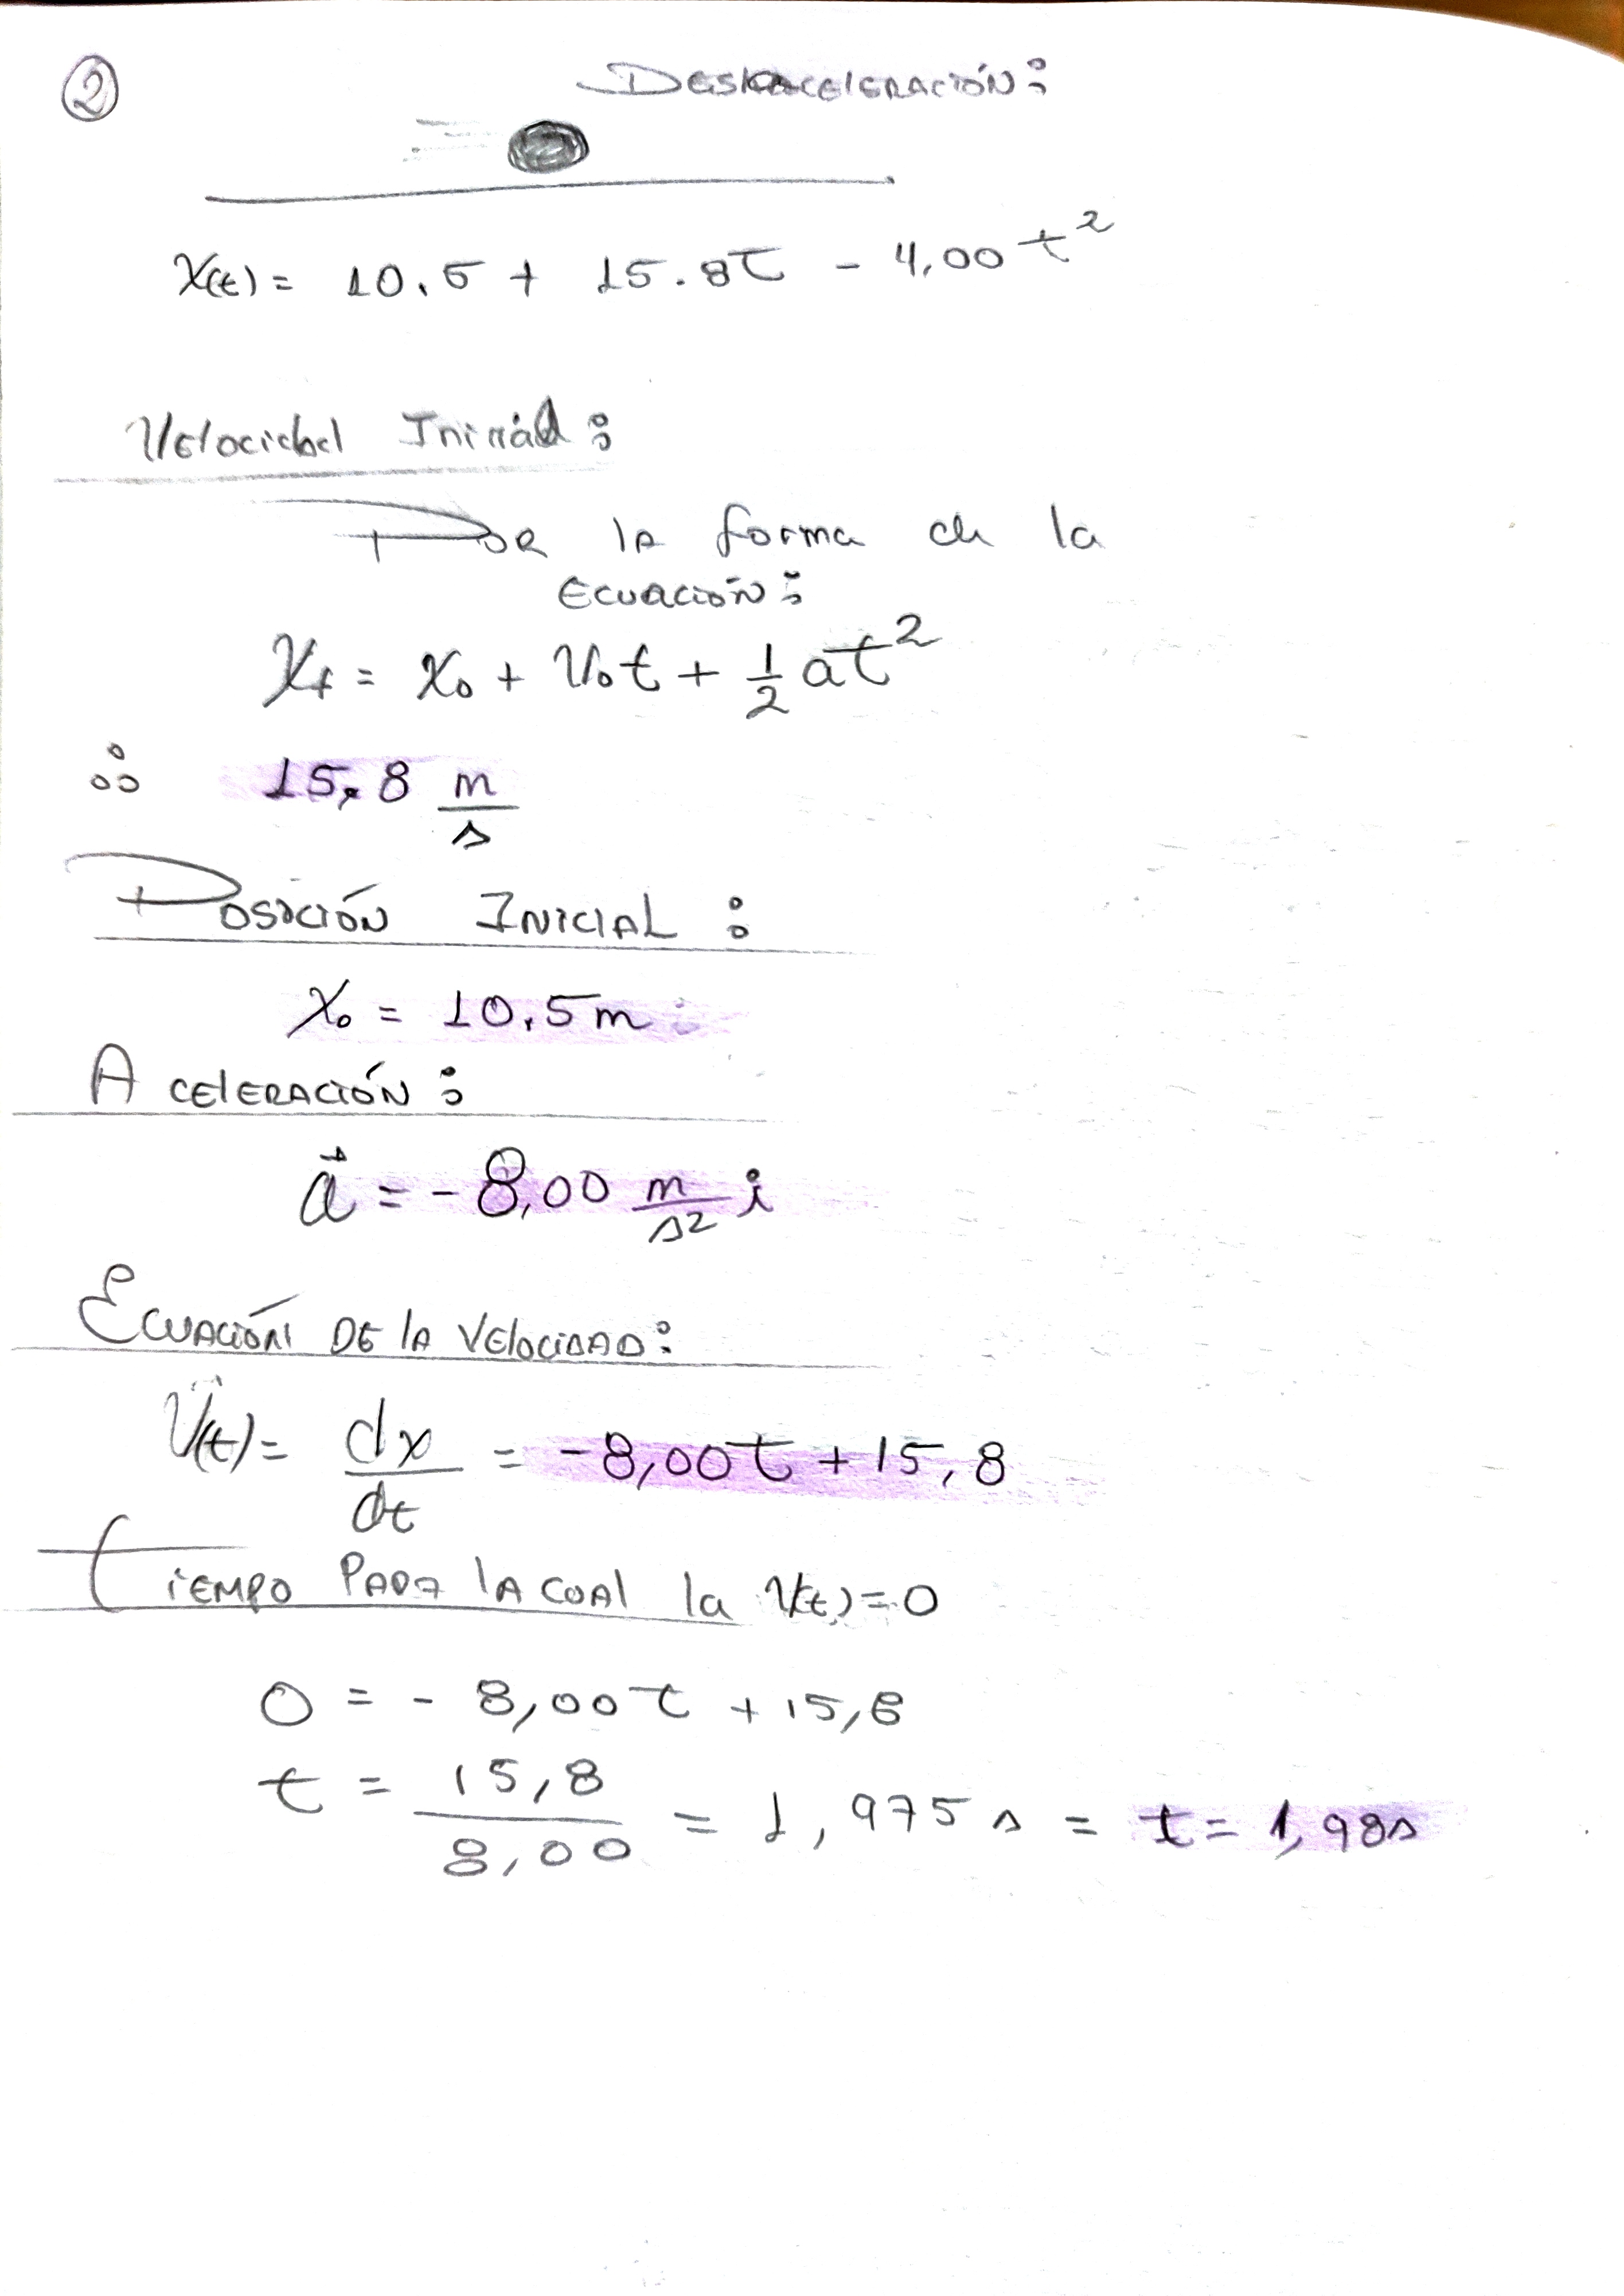 ②
Desaceleración:
X(t) = 10.5 + 15.8t - 4,00 t²
Velocidad Inicial:
Por la forma de la
Ecuación:
Xf = X₀ + V₀t + 1/2 at²
∴ 15,8 m/s
Posición Inicial:
X₀ = 10,5 m
Aceleración:
a⃗ = - 8,00 m/s² i
Ecuación de la Velocidad:
V(t) = dx/dt = -8,00t + 15,8
Tiempo para la cual la V(t) = 0
0 = - 8,00t + 15,8
t = 15,8/8,00 = 1,975 s = t = 1,98s